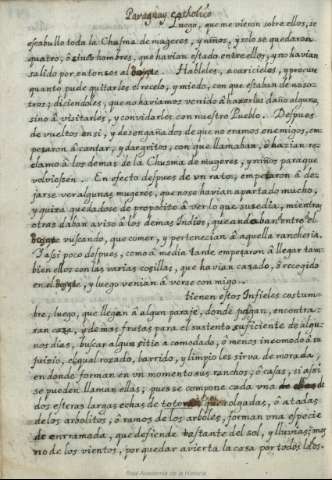 Paraguay catholico
Luego, que me vieron sobre ellos, se
escabullo toda la Chusma de mugeres, y niños; y solo se quedaron
quatro, ò sinco hombres, que havian estado entre ellos, y no havian
salido por entonses al bosque. Hableles, acaricieles, y procure
quanto pude quitarles el recelo, y miedo, con que estaban de noso-
tros; diciendoles, que no haviamos venido á hazerles daño alguno,
sino â visitarles, y convidarles con nuestro Pueblo. Despues
de vueltos en si, y desengañados de que no eramos enemigos, em-
pesaron â cantar, y dar gritos, con que llamaban, ô hazian re-
clamo à los demas de la Chusma de mugeres, y niños para que
volviessen. En efecto despues de un rato, empesaron â de-
jarse ver algunas mugeres, que no se havian apartado mucho,
y quiza quedadose de proposito â ver lo que susedia, mientras
otras daban aviso â los demas Indios, que andaban entre el
bosque vuscando, que comer, y pertenecian â aquella rancheria.
Y assi poco despues, como â media tarde empesaron â llegar tam-
bien ellos con las varias cosillas, que havian casado, ô recogido
en el bosque, y luego venian â verse con migo.
tienen estos Infieles custum-
bre, luego, que llegan â algun paraje, donde jusgan, encontra-
ran caza, y demas frutas para el sustento suficiente de algu-
nos dias, buscar algun sitio acomodado, ô menos incomodo â su
juisio, el qual rozado, barrido, y limpio les sirva de morada,
en donde forman en un momento sus ranchos, ô casas, si assi
se pueden llaman ellas; pues se compone cada una de
dos esteras largas echas de totora que colgadas, ô atadas
de los arbolitos, ô ramos de los arboles, forman una especie
de enrramada, que defiende bastante del sol, y lluvias; mes
no de los vientos, por quedar avierta la casa por todos lados.
Real Academia de la Historia